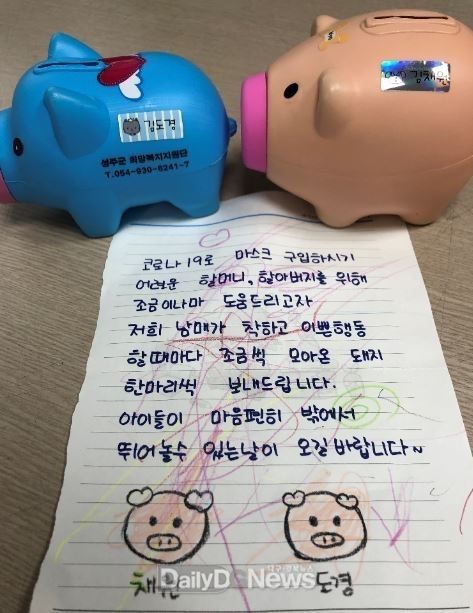 김도경
김채원
성주군 희망복지지원단
T.054-930-8241~7
코로나19로 마스크 구입하시기
어려운 할머니, 할아버지를 위해
조금이나마 도움드리고자
저희 남매가 착하고 이쁜행동
할때마다 조금씩 모아온 돼지
한마리씩 보내드립니다.
아이들이 마음편히 밖에서
뛰어놀수 있는날이 오길 바랍니다~
채원
도경
DailyD
News